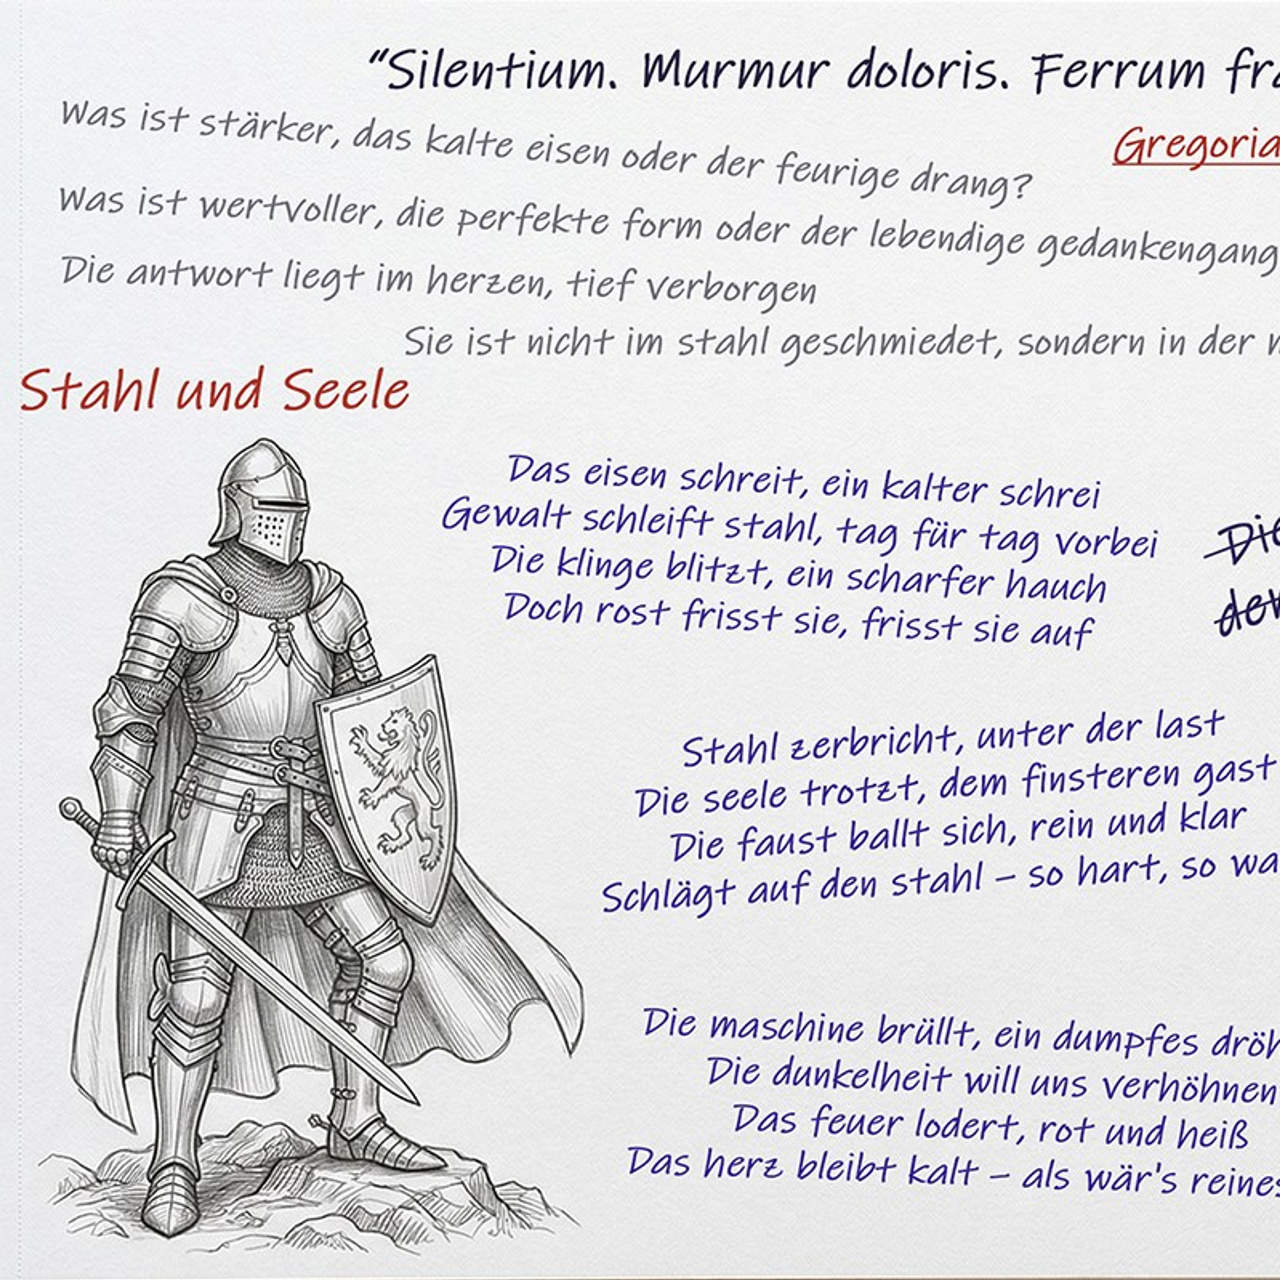 “Silentium. Murmur doloris. Ferrum
Was ist stärker, das kalte eisen oder der feurige drang?
Was ist wertvoller, die perfekte form oder der lebendige gedankengang
Die antwort liegt im herzen, tief verborgen
Sie ist nicht im stahl geschmiedet, sondern in der
Stahl und Seele
Das eisen schreit, ein kalter schrei
Gewalt schleift stahl, tag für tag vorbei
Die klinge blitzt, ein scharfer hauch
Doch rost frisst sie, frisst sie auf
Stahl zerbricht, unter der last
Die seele trotzt, dem finsteren gast
Die faust ballt sich, rein und klar
Schlägt auf den stahl – so hart, so
Die maschine brüllt, ein dumpfes
Die dunkelheit will uns verhöhnen
Das feuer lodert, rot und heiß
Das herz bleibt kalt – als wär's